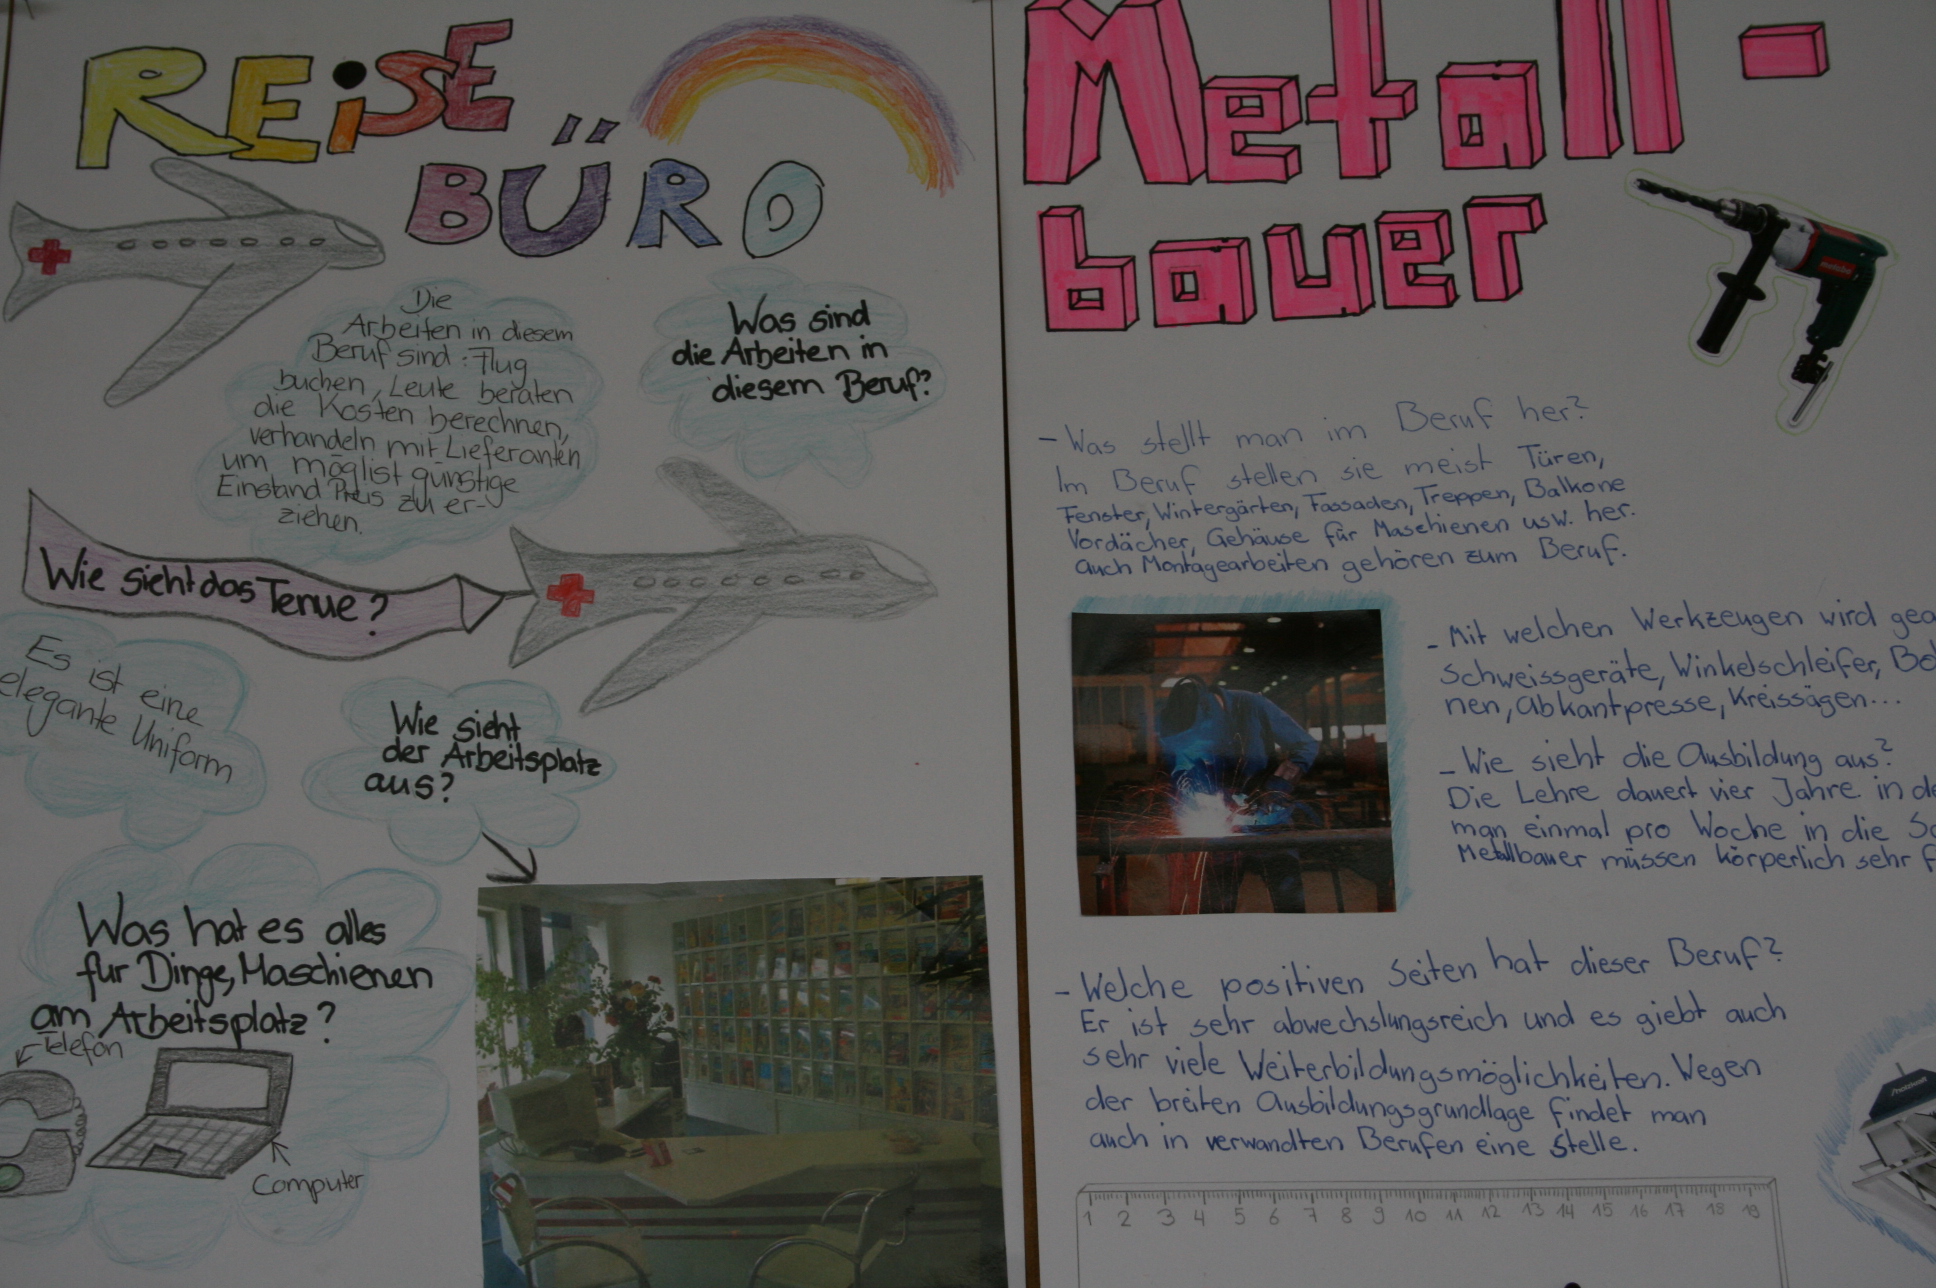 REiSE
BÜRO
Die
Arbeiten in diesem
Beruf sind : Flug
buchen, Leute beraten
die Kosten berechnen,
verhandeln mit Lieferanten
um möglist günstige
Einstand Preis zu er-
ziehen.
Was sind
die Arbeiten in
diesem Beruf?
Wie sieht das Tenue?
Es ist eine
elegante Uniform
Wie sieht
der Arbeitsplatz
aus?
Was hat es alles
für Dinge, Maschienen
am Arbeitsplatz?
Telefon
Computer
Metall-
bauer
metabo
- Was stellt man im Beruf her?
Im Beruf stellen sie meist Türen,
Fenster, Wintergärten, Fassaden, Treppen, Balkone
Vordächer, Gehäuse für Maschienen usw. her.
auch Montagearbeiten gehören zum Beruf.
- Mit welchen Werkzeugen wird
Schweissgeräte, Winkelschleifer,
nen, Abkantpresse, Kreissägen...
- Wie sieht die Ausbildung aus?
Die Lehre dauert vier Jahre in
man einmal pro Woche in die
Metallbauer müssen körperlich sehr
- Welche positiven Seiten hat dieser Beruf?
Er ist sehr abwechslungsreich und es giebt auch
sehr viele Weiterbildungsmöglichkeiten. Wegen
der breiten Ausbildungsgrundlage findet man
auch in verwandten Berufen eine Stelle.
1 2 3 4 5 6 7 8 9 10 11 12 13 14 15 16 17 18 19